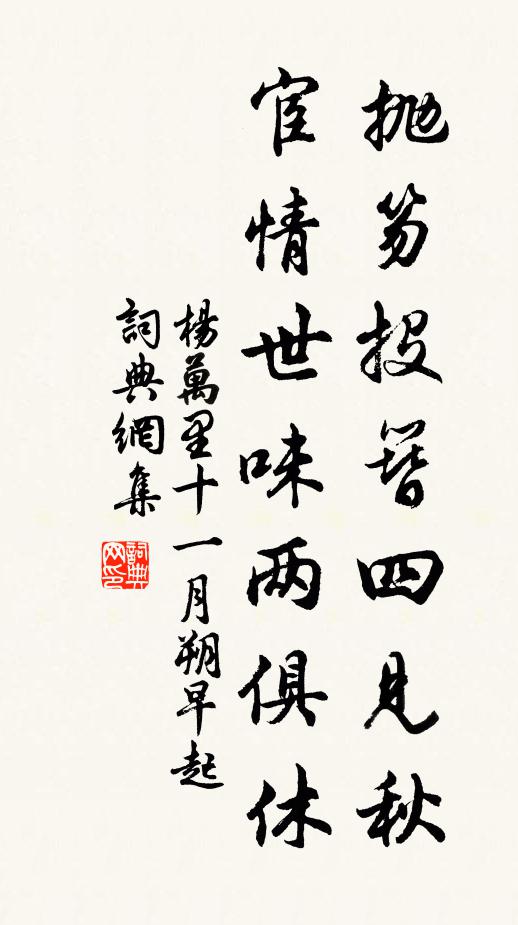 抛笏投簪四見秋
宦情世味两俱休
楊萬里十一月朔早起
詞典網集
詞典網印